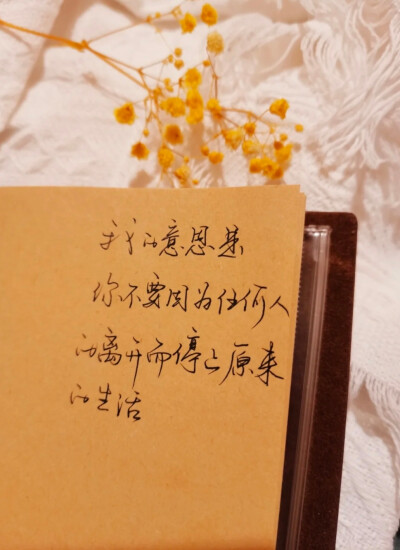 我的意思是
你不要因为任何人
的离开而停止原来
的生活